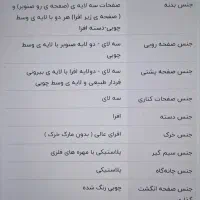 جنس بدنه
صفحات سه لایه ی (صفحه ی رو صنوبر) و
(صفحه ی زیر افرا) هر دو با لایه ی وسط
چوبی-دسته افرا
جنس صفحه رویی
سه لای - دو لایه صنوبر با لایه ی وسط
چوبی
جنس صفحه پشتی
سه لای - دولایه افرا با لایه ی بیرونی
فردار طبیعی و لایه ی وسط چوبی
جنس صفحات کناری
سه لای
جنس دسته
افرا
جنس خرک
افرای عالی (بدون مارک خرک)
جنس سیم گیر
پلاستیکی با مهره های فلزی
جنس چانه‌گاه
پلاستیکی
جنس صفحه انگشت
چوبی رنگ شده